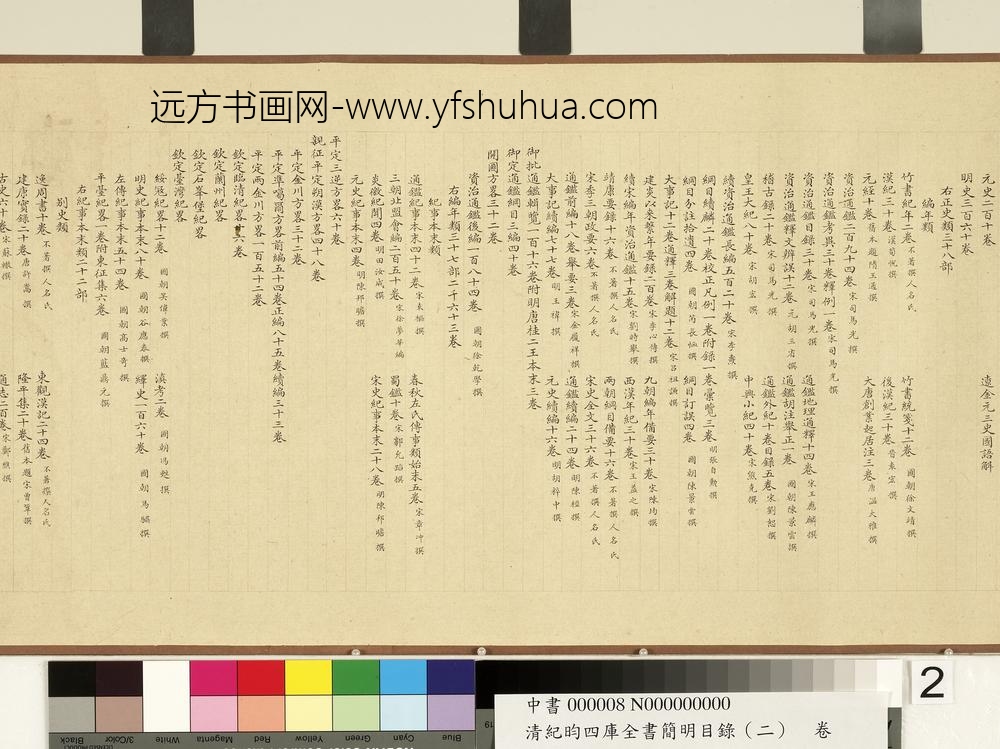 远方书画网-www.yfshuhua.com
元史二百十卷 遼金元三史國語解
明史三百六十卷
右正史類三十八部
編年類
竹書紀年二卷 不著撰人名氏 竹書統箋十二卷 國朝徐文靖撰
漢紀三十卷 漢荀悅撰 後漢紀三十卷 晉袁宏撰
元經十卷 舊本題隋王通撰 大唐創業起居注三卷 唐溫大雅撰
資治通鑑二百九十四卷 宋司馬光撰
資治通鑑考異三十卷釋例一卷 宋司馬光撰 通鑑地理通釋十四卷 宋王應麟撰
資治通鑑目錄三十卷 宋司馬光撰 通鑑胡注舉正一卷 國朝陳景雲撰
資治通鑑釋文辨誤十二卷 元胡三省撰 通鑑外紀十卷目錄五卷 宋劉恕撰
稽古錄二十卷 宋司馬光撰
皇王大紀八十卷 宋胡宏撰 中興小紀四十卷 宋熊克撰
續資治通鑑長編五百二十卷 宋李燾撰
綱目續麟二十卷校正凡例一卷附錄一卷彙覽三卷 明張自勲撰
綱目分註拾遺四卷 國朝芮長恤撰 綱目訂誤四卷 國朝陳景雲撰
大事記十二卷通釋三卷解題十二卷 宋呂祖謙撰
建炎以來繫年要錄二百卷 宋李心傳撰 九朝編年備要三十卷 宋陳均撰
續宋編年資治通鑑十五卷 宋劉時舉撰 西漢年紀三十卷 宋王益之撰
靖康要錄十六卷 不著撰人名氏 兩朝綱目備要十六卷 不著撰人名氏
宋季三朝政要六卷 不著撰人名氏 宋史全文三十六卷 不著撰人名氏
通鑑前編十八卷舉要三卷 宋金履祥撰 通鑑續編二十四卷 明陳桱撰
大事記續編七十七卷 明王禕撰 元史續編十六卷 明胡粹中撰
御批通鑑輯覽一百十六卷附明唐桂二王本末三卷
御定通鑑綱目三編四十卷
開國方畧三十二卷
資治通鑑後編一百八十四卷 國朝徐乾學撰
右編年類三十七部二千六十三卷
紀事本末類
通鑑紀事本末四十二卷 宋袁樞撰 春秋左氏傳事類始末五卷 宋章冲撰
三朝北盟會編二百五十卷 宋徐夢莘編 蜀鑑十卷 宋郭允蹈撰
炎徼紀聞四卷 明田汝成撰 宋史紀事本末二十八卷 明陳邦瞻撰
元史紀事本末四卷 明陳邦瞻撰
平定三逆方畧六十卷
親征平定朔漠方畧四十八卷
平定金川方畧三十二卷
平定準噶爾方畧前編五十四卷正編八十五卷續編三十三卷
平定兩金川方畧一百五十二卷
欽定臨清紀畧十六卷
欽定蘭州紀畧
欽定石峯堡紀畧
欽定臺灣紀畧
綏寇紀畧十二卷 國朝吳偉業撰 滇考二卷 國朝馮甦撰
明史紀事本末八十卷 國朝谷應泰撰 繹史一百六十卷 國朝馬驌撰
左傳紀事本末五十四卷 國朝高士奇撰
平臺紀畧一卷附東征集六卷 國朝藍鼎元撰
右紀事本末類二十二部
別史類
逸周書十卷 不著撰人名氏 東觀漢記二十四卷 不著撰人名氏
建康實錄二十卷 唐許嵩撰 隆平集二十卷 舊本題宋曾鞏撰
古史六十卷 宋蘇轍撰 通志二百卷 宋鄭樵撰
Blue
Cyan
Green
Yellow
Red
Magenta
White
3/Color
Black
19
2
中書 000008 N000000000
清紀昀四庫全書簡明目錄（二） 卷